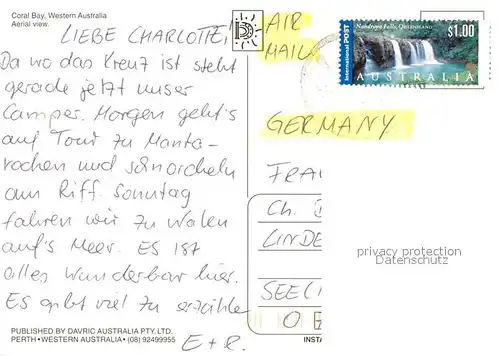 Coral Bay, Western Australia
Aerial view.
LIEBE CHARLOTTE!
Da wo das Kreuz ist steht
gerade jetzt unser
Camper. Morgen geht's
auf Tour zu Manta-
rochen und schnorcheln
am Riff. Sonntag
fahren wir zu Walen
auf's Meer. ES IST
alles wunderbar hier.
Es gibt viel zu erzählen
E + R.
PUBLISHED BY DAVRIC AUSTRALIA PTY. LTD.
PERTH • WESTERN AUSTRALIA • (08) 92499955
AIR
MAIL
International POST
Nandroya Falls, QUEENSLAND
$1.00
AUSTRALIA
GERMANY
FRA
Ch.
LINDE
SEEL
privacy protection
Datenschutz
INSTA